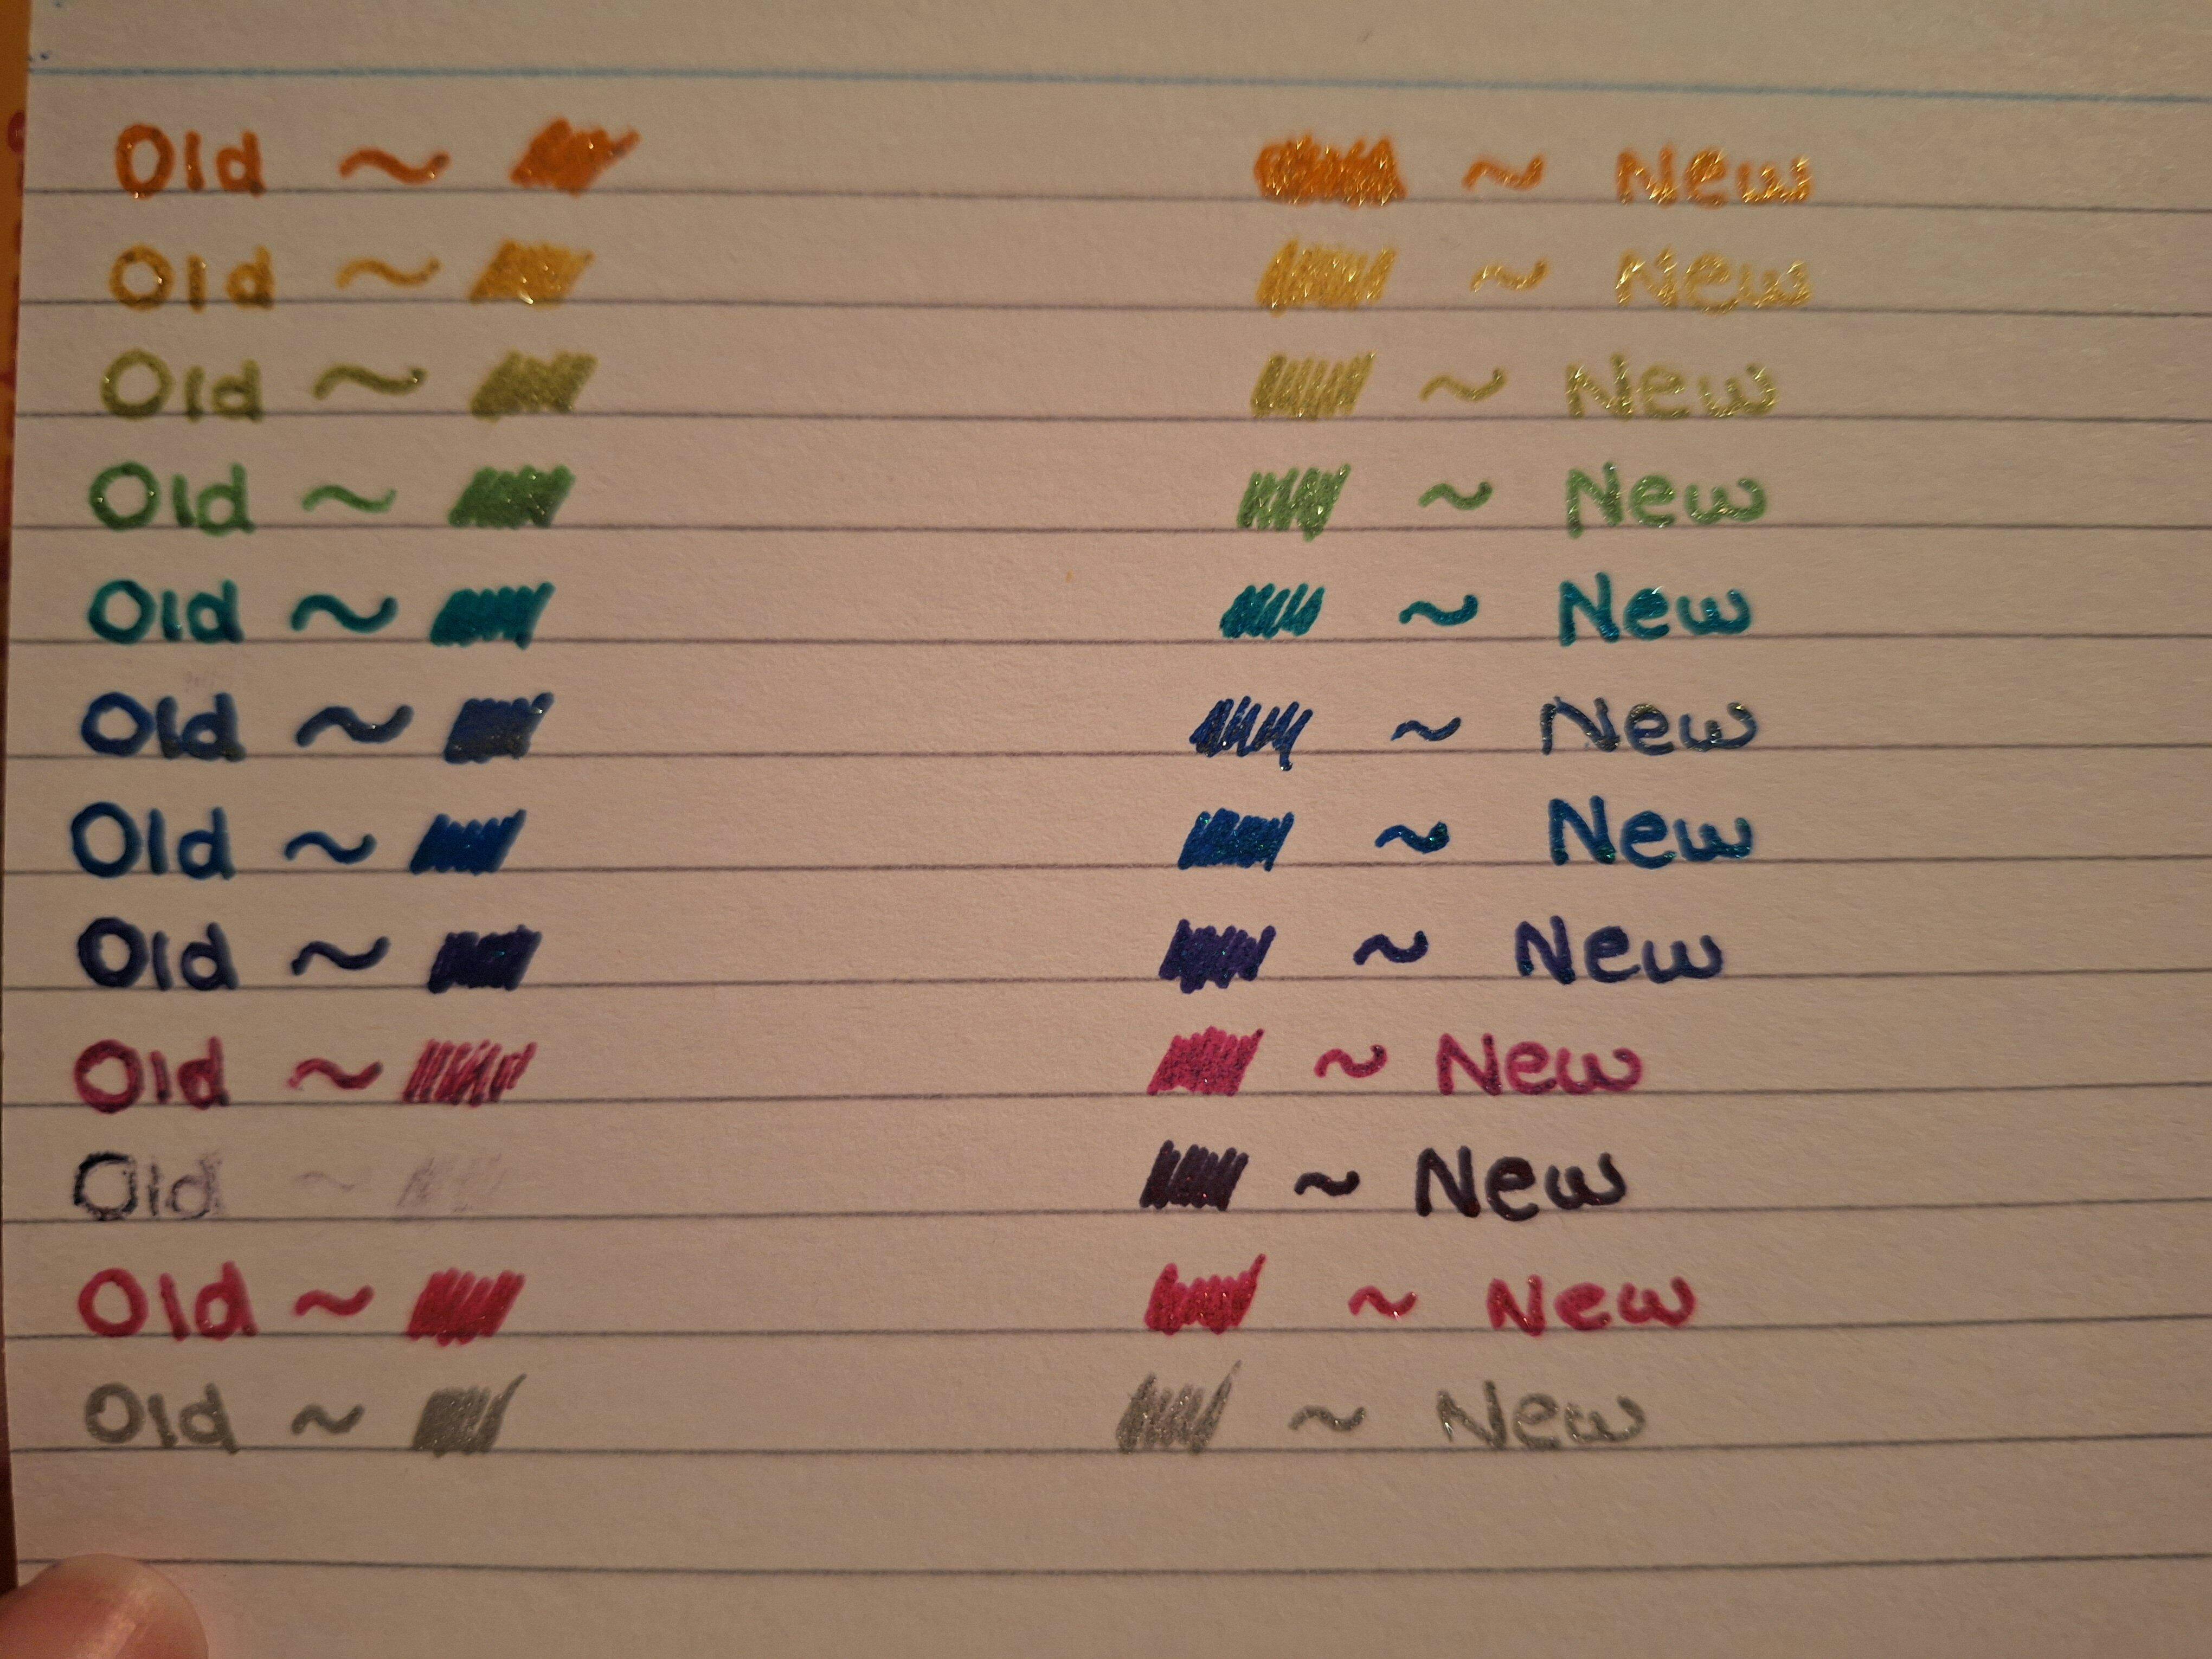 Old ~ ~ New
Old ~ ~ New
Old ~ ~ New
Old ~ ~ New
Old ~ ~ New
Old ~ ~ New
Old ~ ~ New
Old ~ ~ New
Old ~ ~ New
Old ~ ~ New
Old ~ ~ New
Old ~ ~ New